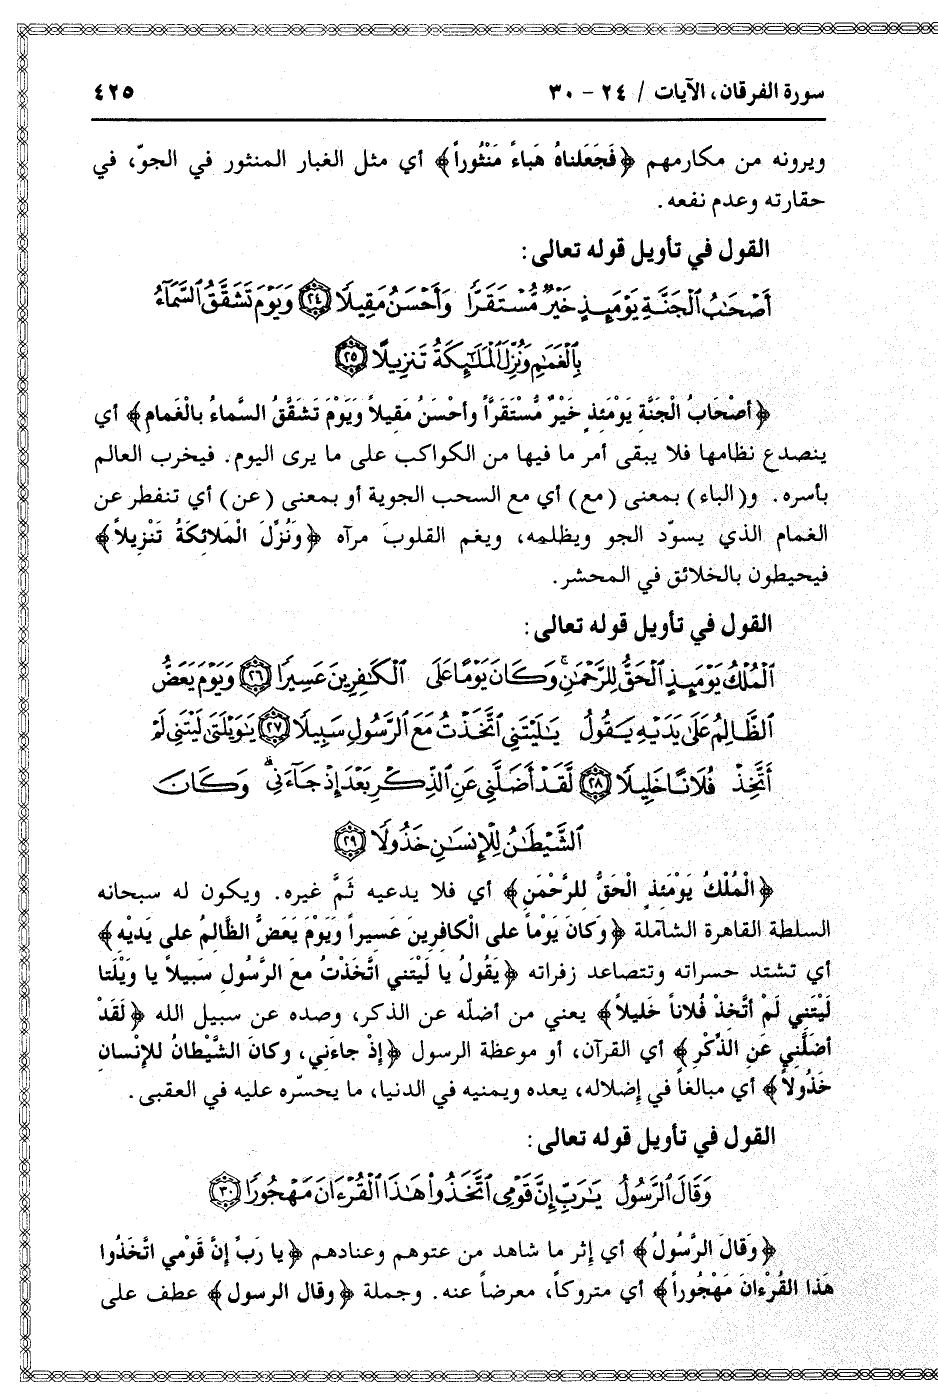 سورة الفرقان، الآيات / ٢٤ - ٣٠ ٤٢٥
ويرونه من مكارمهم ﴿فَجَعَلناهُ هَباءً مَنْثُوراً﴾ أي مثل الغبار المنثور في الجوّ، في
حقارته وعدم نفعه.
القول في تأويل قوله تعالى:
أَصْحَٰبُ ٱلْجَنَّةِ يَوْمَئِذٍ خَيْرٌ مُّسْتَقَرًّا وَأَحْسَنُ مَقِيلًا ٢٤ وَيَوْمَ تَشَقَّقُ ٱلسَّمَآءُ
بِٱلْغَمَٰمِ وَنُزِّلَ ٱلْمَلَٰٓئِكَةُ تَنزِيلًا ٢٥
﴿أصْحَابُ الْجَنَّةِ يَوْمَئذٍ خَيْرٌ مُّسْتَقَرًّاً وأحْسَنُ مَقيلاً وَيَوْمَ تَشَقَّقُ السَّماءُ بالْغَمامِ﴾ أي
ينصدع نظامها فلا يبقى أمر ما فيها من الكواكب على ما يرى اليوم. فيخرب العالم
بأسره. و(الباء) بمعنى (مع) أي مع السحب الجوية أو بمعنى (عن) أي تنفطر عن
الغمام الذي يسوّد الجو ويظلمه، ويغم القلوبَ مرآه ﴿وَنُزِّلَ الْمَلائكَةُ تَنْزيلاً﴾
فيحيطون بالخلائق في المحشر.
القول في تأويل قوله تعالى:
ٱلْمُلْكُ يَوْمَئِذٍ ٱلْحَقُّ لِلرَّحْمَٰنِ ۚ وَكَانَ يَوْمًا عَلَى ٱلْكَٰفِرِينَ عَسِيرًا ٢٦ وَيَوْمَ يَعَضُّ
ٱلظَّالِمُ عَلَىٰ يَدَيْهِ يَقُولُ يَٰلَيْتَنِى ٱتَّخَذْتُ مَعَ ٱلرَّسُولِ سَبِيلًا ٢٧ يَٰوَيْلَتَىٰ لَيْتَنِى لَمْ
أَتَّخِذْ فُلَانًا خَلِيلًا ٢٨ لَّقَدْ أَضَلَّنِى عَنِ ٱلذِّكْرِ بَعْدَ إِذْ جَآءَنِى ۗ وَكَانَ
ٱلشَّيْطَٰنُ لِلْإِنسَٰنِ خَذُولًا ٢٩
﴿الْمُلْكُ يَوْمَئذٍ الْحَقُّ للرَّحْمَنِ﴾ أي فلا يدعيه ثَمَّ غيره. ويكون له سبحانه
السلطة القاهرة الشاملة ﴿وَكانَ يَوْماً على الْكافرينَ عَسيراً وَيَوْمَ يَعَضُّ الظَّالمُ على يَديْه﴾
أي تشتد حسراته وتتصاعد زفراته ﴿يَقُولُ يا لَيْتَني اتَّخَذْتُ معَ الرَّسُولِ سَبيلاً يا وَيْلَتا
لَيْتَني لَمْ أتَّخذْ فُلاناً خَليلاً﴾ يعني من أضلّه عن الذكر، وصده عن سبيل الله ﴿لَقَدْ
أضلَّني عَنِ الذِّكْرِ﴾ أي القرآن، أو موعظة الرسول ﴿إذْ جاءَني، وكانَ الشَّيْطانُ للإنْسانِ
خَذُولاً﴾ أي مبالغاً في إضلاله، يعده ويمنيه في الدنيا، ما يحسّره عليه في العقبى.
القول في تأويل قوله تعالى:
وَقَالَ ٱلرَّسُولُ يَٰرَبِّ إِنَّ قَوْمِى ٱتَّخَذُوا۟ هَٰذَا ٱلْقُرْءَانَ مَهْجُورًا ٣٠
﴿وَقالَ الرَّسُولُ﴾ أي إثر ما شاهد من عتوهم وعنادهم ﴿يا رَبِّ إنَّ قَوْمي اتَّخَذُوا
هَذا القُرْءانَ مَهْجُوراً﴾ أي متروكاً، معرضاً عنه. وجملة ﴿وقال الرسول﴾ عطف على